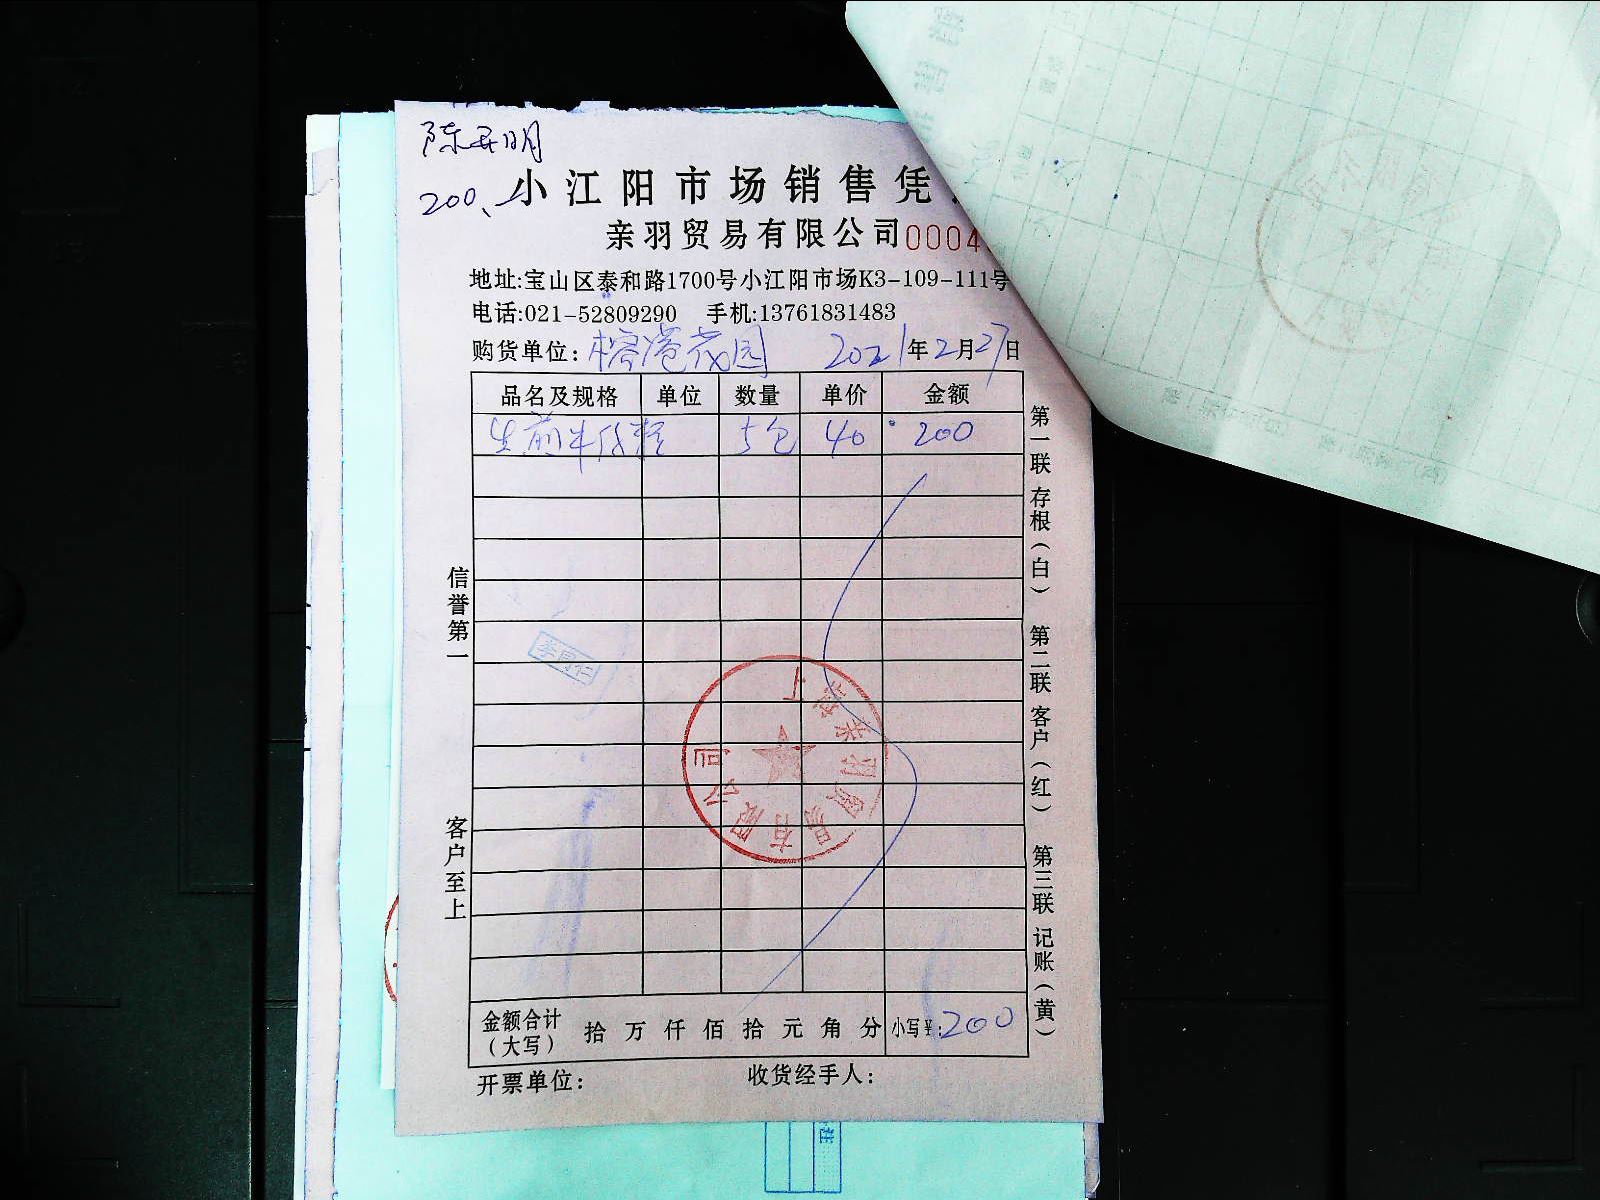 陈开明
200、
小江阳市场销售凭
亲羽贸易有限公司 0004
地址:宝山区泰和路1700号小江阳市场K3-109-111号
电话:021-52809290 手机:13761831483
购货单位: 花园 2021年2月27日
品名及规格 单位 数量 单价 金额
生煎牛 5包 40 200
信誉第一
客户至上
第一联 存根(白) 第二联 客户(红) 第三联 记账(黄)
亲羽贸易有限公司
金额合计(大写) 拾 万 仟 佰 拾 元 角 分 小写¥:200
开票单位: 收货经手人: